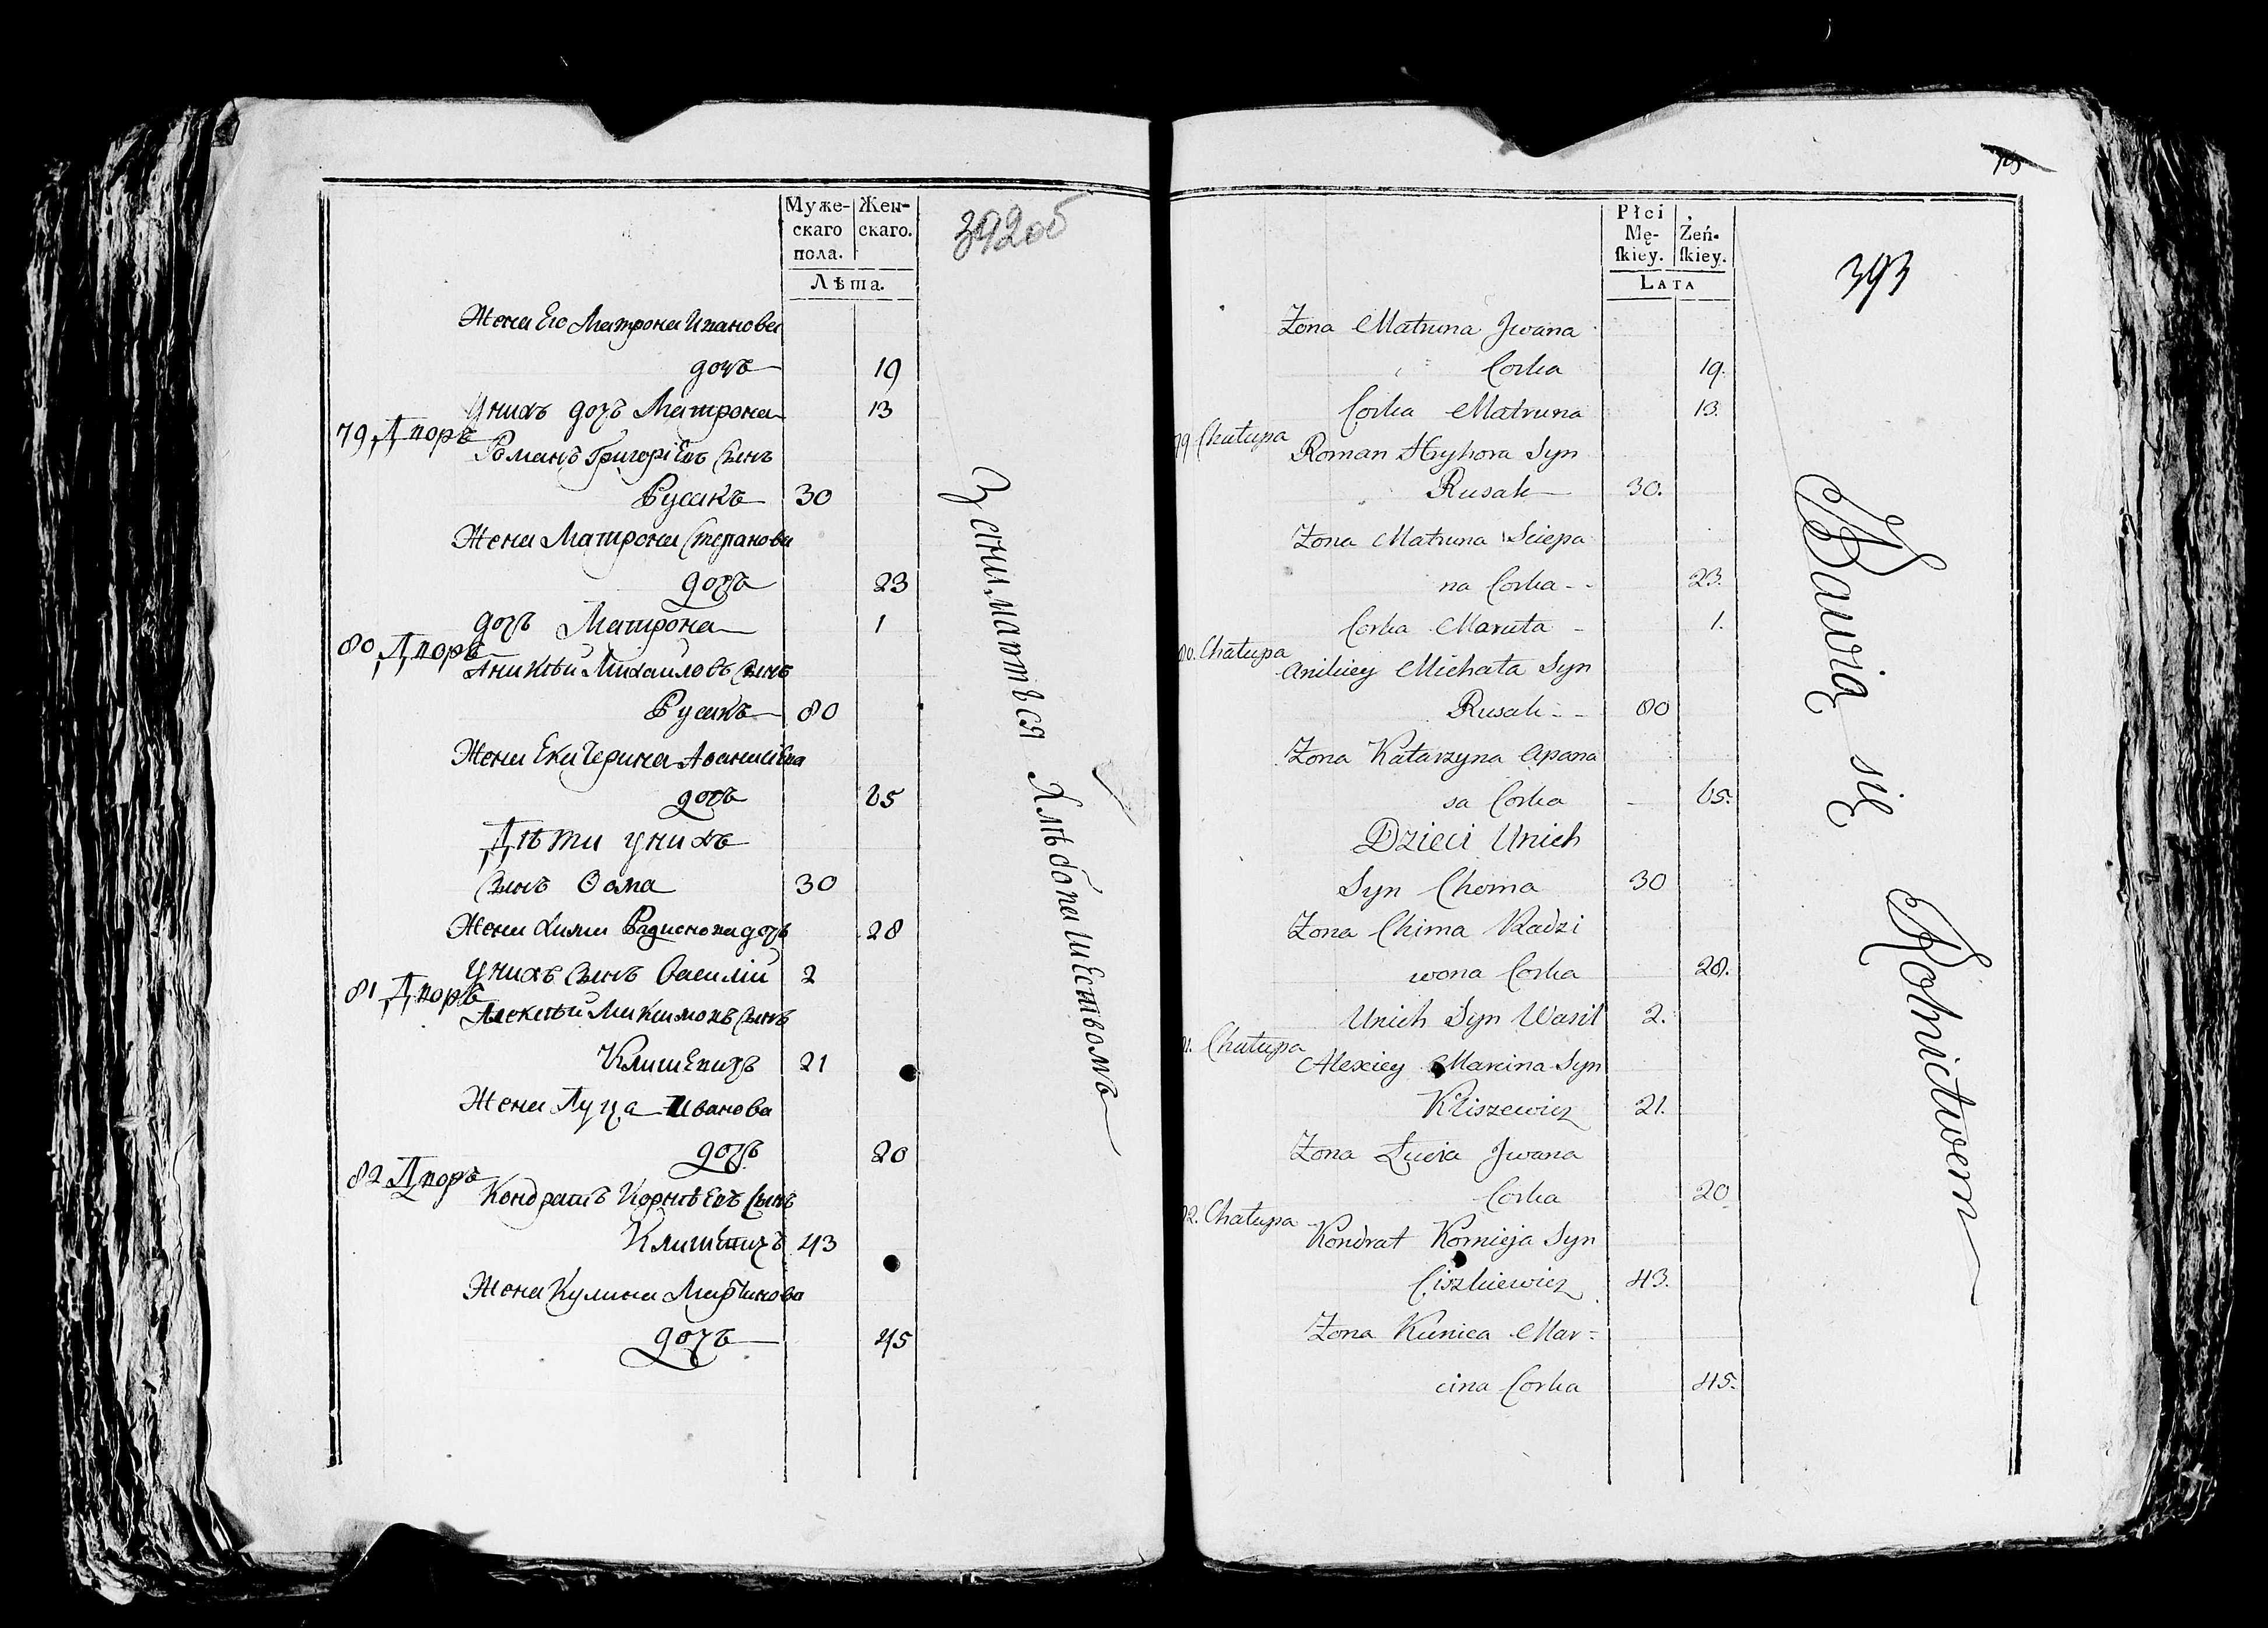 Муже-
скаго
пола.
Жен-
скаго.
Лѣта.
392об
Жена Его Матрона Иванова
дочь 19
У нихъ дочь Матрона 13
79 Дворъ
Романъ Григорiевъ Сынъ
Русакъ 30
Жена Матрона Степанова
дочь 23
дочь Матрона 1
80 Дворъ
Аникѣй Михайловъ Сынъ
Русакъ 80
Жена Екатерина Аѳанасiева
дочь 65
Дѣти у нихъ
Сынъ Ѳома 30
Жена Хима Радионова дочь 28
У нихъ Сынъ Василiй 2
81 Дворъ
Алексѣй Максимовъ Сынъ
Клишевичъ 21
Жена Луца Иванова
дочь 20
82 Дворъ
Кондратъ Корнѣевъ Сынъ
Клишевичъ 43
Жена Кулина Мартинова
дочь 45
Занимаются Хлѣбопашествомъ
Płci
Mę-
ſkiey.
Żeń-
ſkiey.
LATA
393
Zona Matruna Jwana
Corka 19.
Corka Matruna 13.
79 Chałupa
Roman Hryhora Syn
Rusak 30.
Zona Matruna Sciepa
na Corka - - 23.
Corka Maruta - 1.
80. Chałupa
Anikiey Michała Syn
Rusak - - 80
Zona Katarzyna Apana
sa Corka 65.
Dzieci Unich
Syn Choma 30
Zona Chima Radzi
wona Corka 28.
Unich Syn Wasil 2.
1. Chałupa
Alexiey Marcina Syn
Kliszewicz 21.
Zona Łucia Jwana
Corka 20
2. Chałupa
Kondrat Kornieja Syn
Ciszkiewicz 43.
Zona Kunica Mar=
cina Corka 45.
Bawią się Rolnictwem